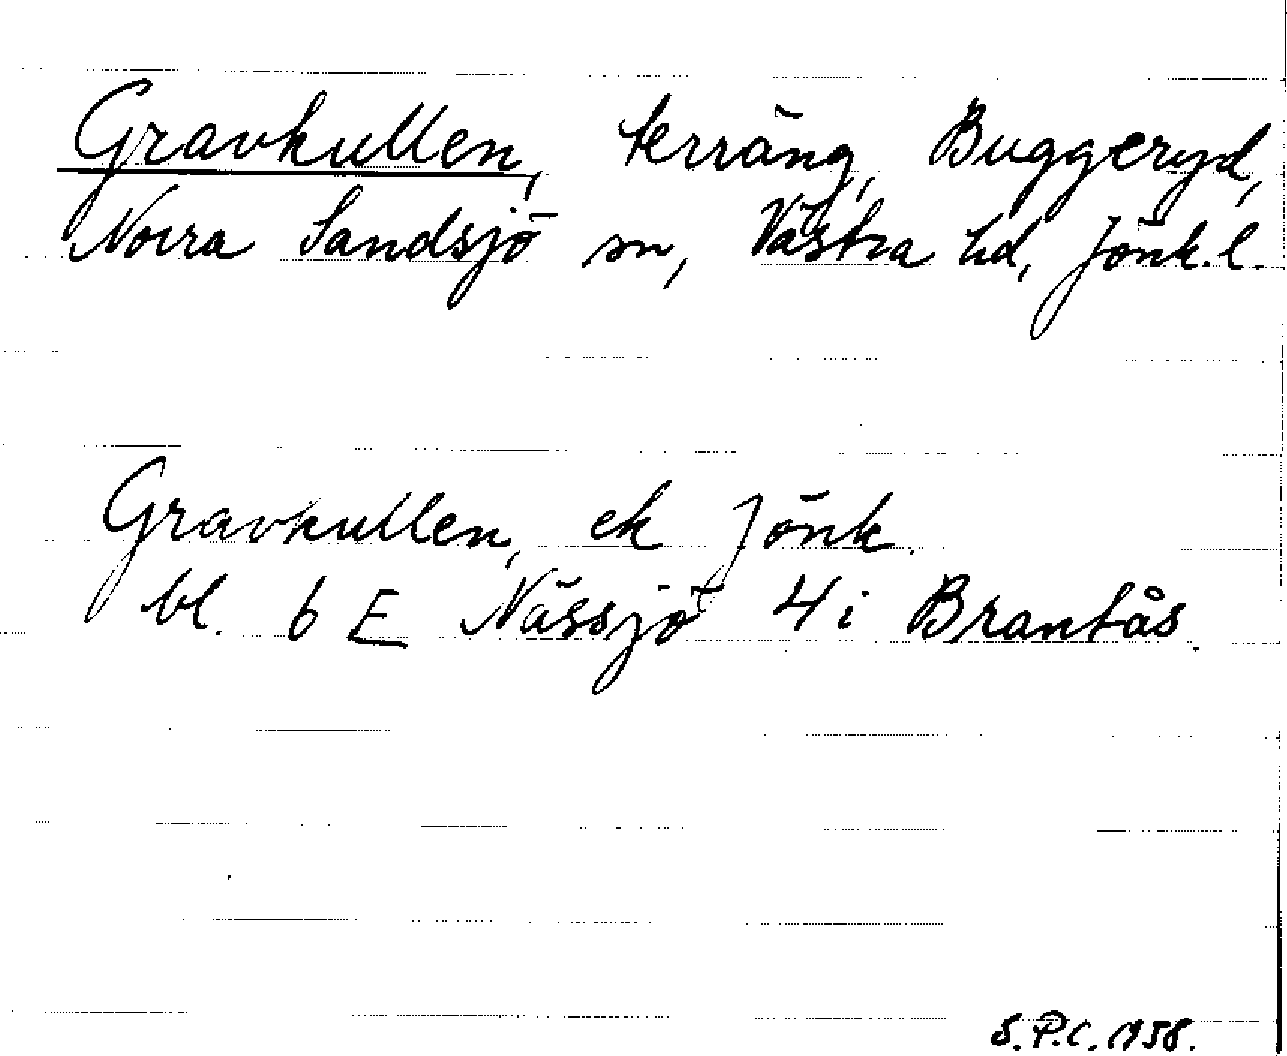 Gravkullen, terräng, Buggeryd,
Norra Sandsjö sn, Västra hd, Jönk.l.
Gravkullen, ek Jönk.
bl. 6 E Nässjö 4 i Brantås.
S.P.C. 1958.